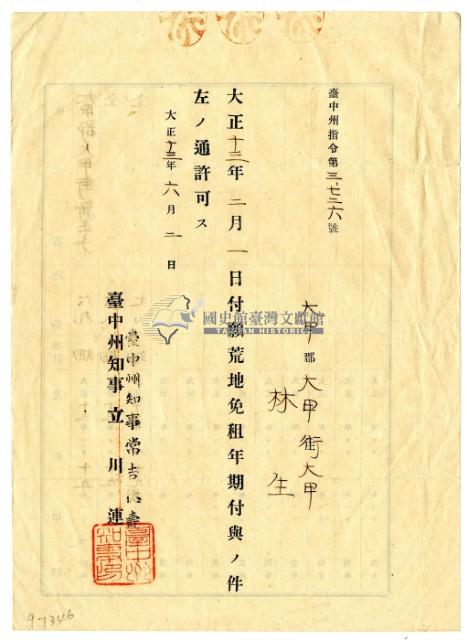 臺中州指令第三、七二六號
大甲郡大甲街大甲
林生
大正十三年二月一日付願荒地免租年期付與ノ件
左ノ通許可ス
大正十三年六月二日
臺中州知事常吉德壽
臺中州知事立川連
臺中州知事印
國史館臺灣文獻館
TAIWAN HISTORICA
9-7346